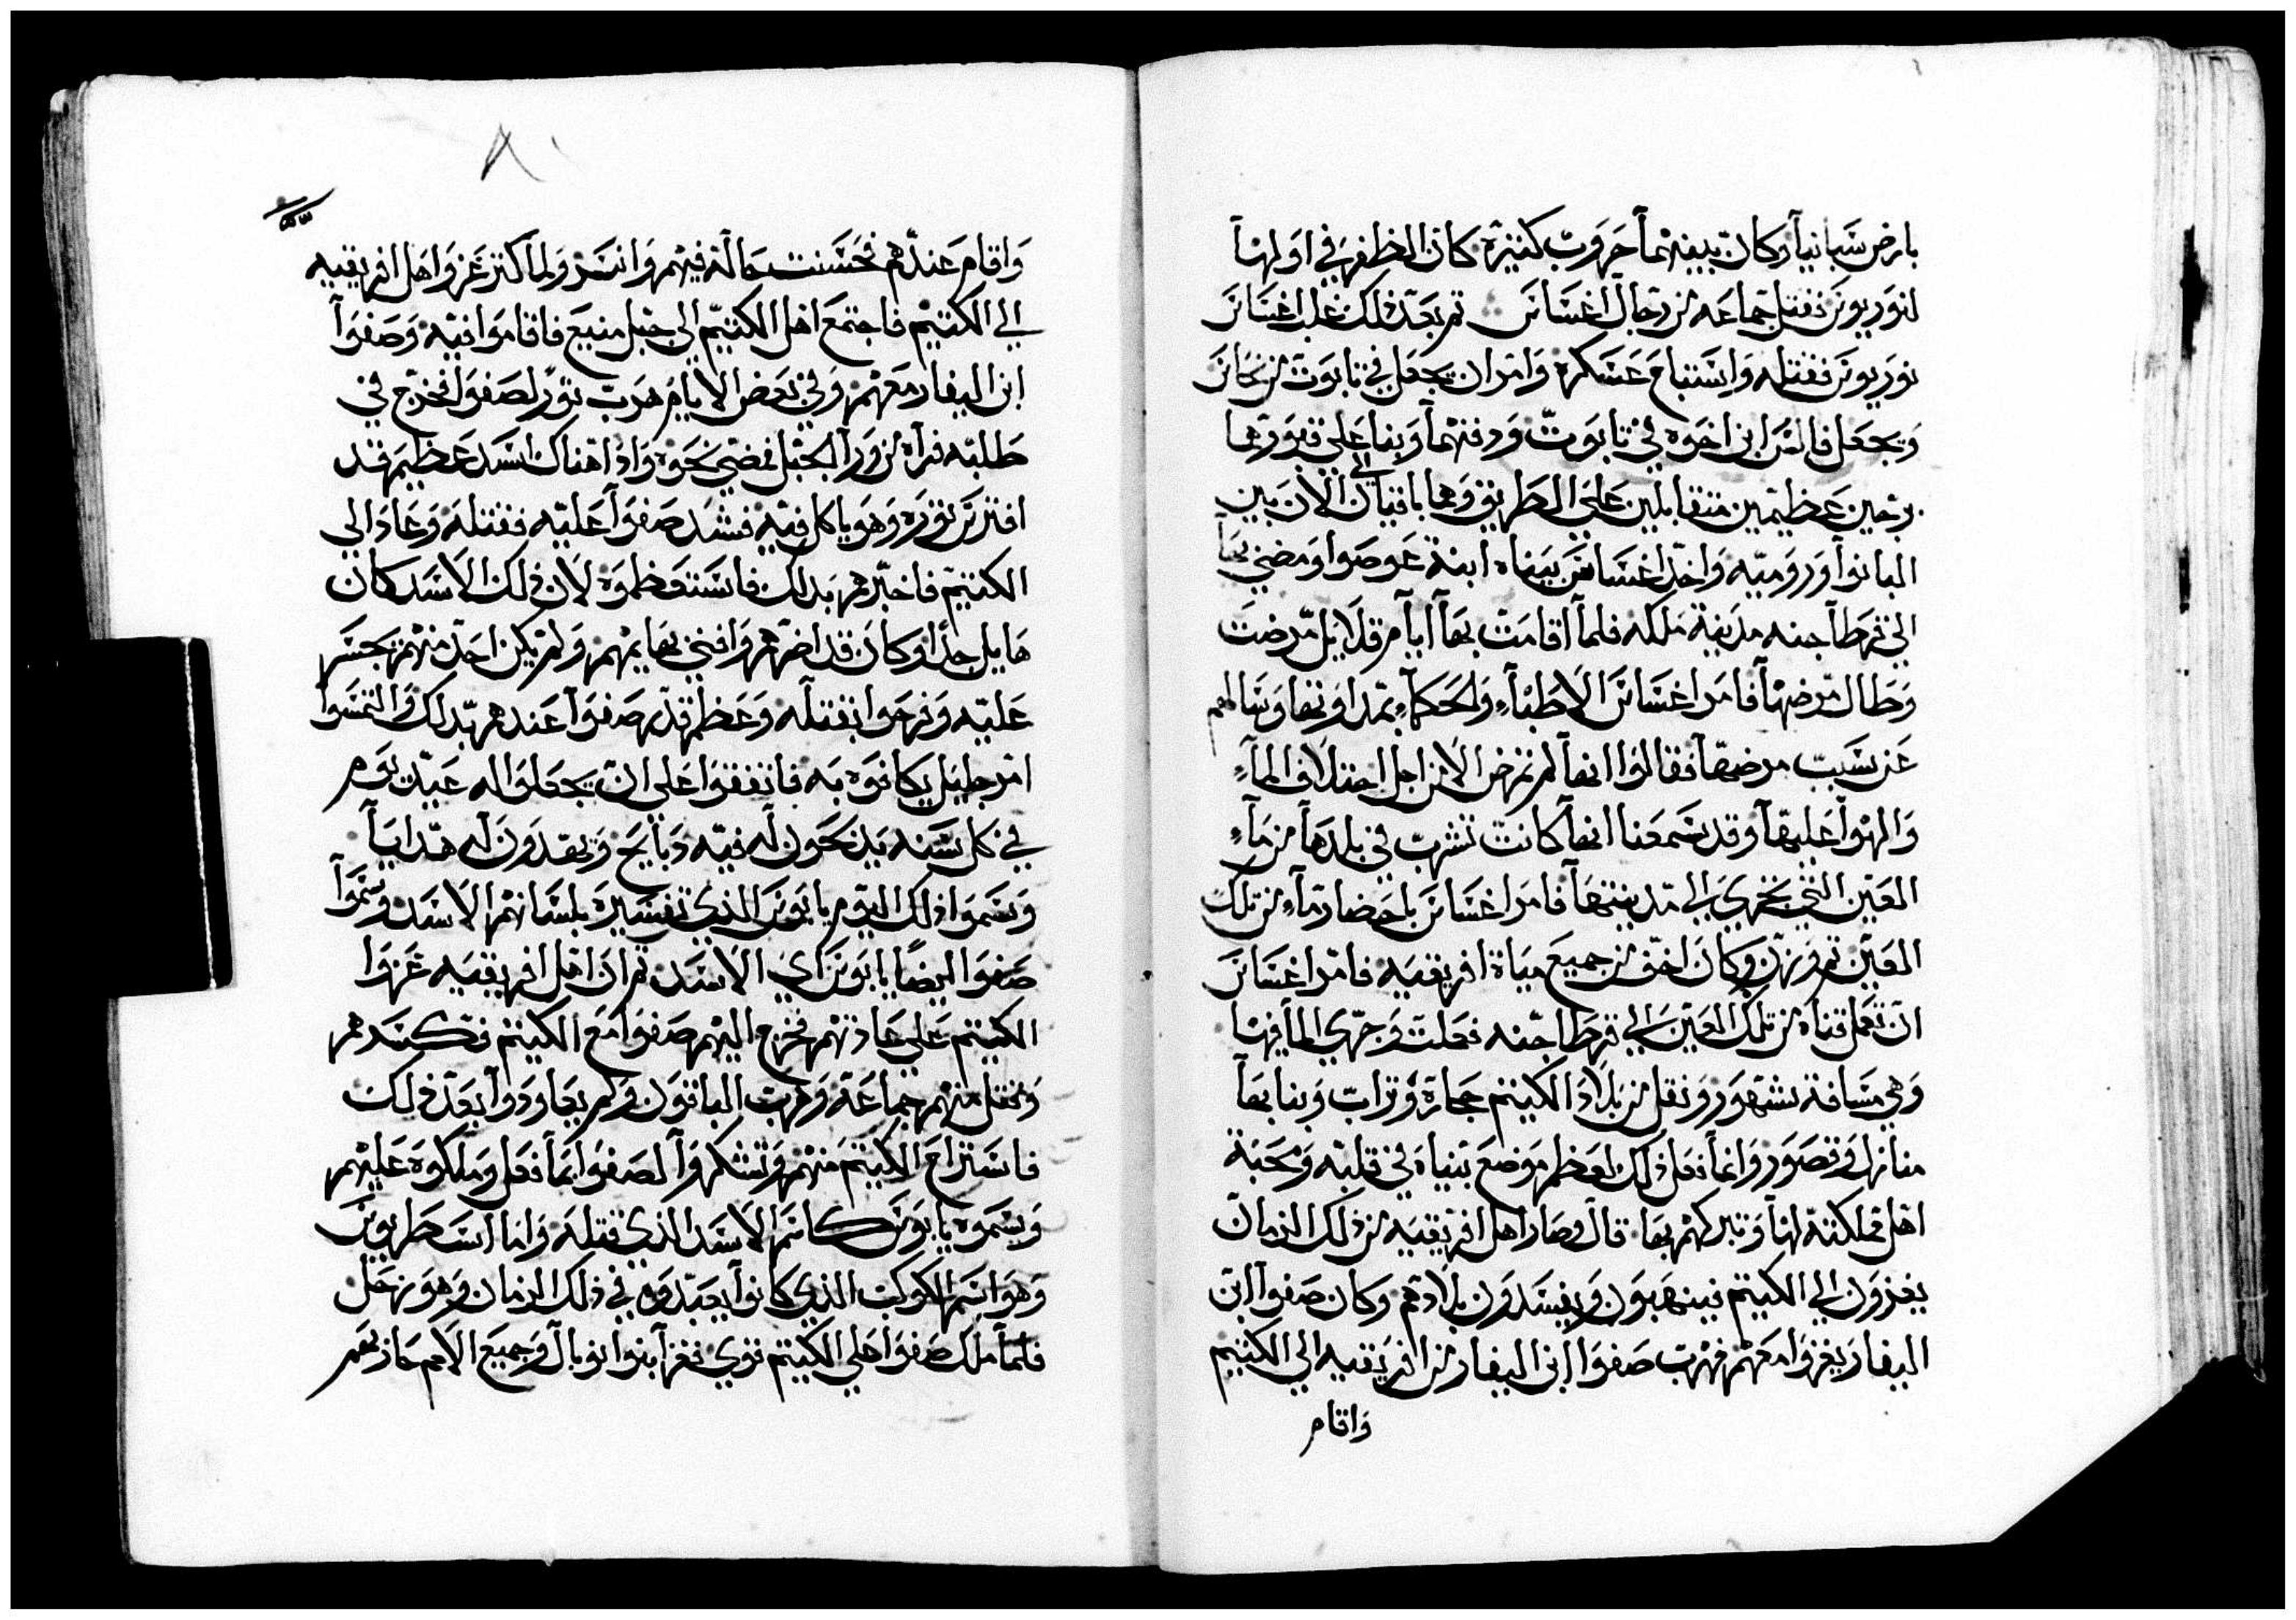 بارض شبانيا وكان بينهما حروب كثيرة كان الظفر في اولها
لنوريوس فقتل جماعه من رجال اغسانس ثم بعد ذلك غلب اغسانس
نوريوس فقتله واستباح عسكره وامر ان يجعل في تابوت من نحاس
ويجعل فالس ابن اخوه في تابوت ودفنهما وبنا على قبورهما
برجين عظيمين متقابلين علي الطريق وهما باقيان الي الان بين
البانوا وروميه واخد اغسانس ينياه ابنة عوصوا ومضي بها
الي قرطاجنه مدينة ملكه فلما اقامت بها ايام قلايل مرضت
وطال مرضها فامر اغسانس الاطباء والحكماء بمداوتها وسالهم
عن سبب مرضها فقالوا انها لم تمرض الا من اجل اختلاف الماء
والهوا عليها وقد سمعنا انها كانت تشرب في بلدها من ماء
العين التي تجري الي مدينتها فامر اغسانس باحضار ماء من تلك
العين ثم وزن وكان اخف من جميع مياة افريقيه فامر اغسانس
ان تعمل قناه من تلك العين الي قرطاجنه فعملت وجري الما فيها
وهي مسافة شهور ونقل من بلاد الكيتم حجارة وتراب وبنا بها
منازل وقصور وانما فعل ذلك لعظم موضع ينياه في قلبه ومحبة
اهل مملكته لها وتبركهم بها قال وصار اهل افريقيه من ذلك الزمان
يغزون الي الكيتم فينهبون ويفسدون بلادهم وكان صفوا ابن
اليفاز يغزوا معهم فهرب صفوا ابن اليفاز من افريقيه الي الكيتيم
واقام
واقام عندهم فحسنت حالته فيهم وانسر ولما كثر غزوا اهل افريقيه
الي الكيتيم فاجتمع اهل الكيتيم الي جبل منيع فاقاموا فيه وصفوا
ابن اليفاز معهم وفي بعض الايام هرب ثور لصفوا فخرج في
طلبه فراه من ورا الجبل فمضي نحوه واذا هناك اسد عظيم قد
افترس ثوره وهو ياكل فيه فشد صفوا عليه فقتله وعاد الي
الكيتيم فاخبرهم بدلك فاستعظموه لان ذلك الاسد كان
هايل جدا وكان قد اضرهم وافني بهايمهم ولم يكن احد منهم يجسر
عليه وفرحوا بقتله وعظم قدر صفوا عندهم بدلك والتمسوا
امر جليل يكافوه به فاتفقوا علي ان يجعلوا له عيد يوم
في كل سنه يدبحون له فيه دبايح ويقدون له هدايا
وسموا ذلك اليوم يابوس الذي تفسيره بلسانهم الاسد وسموا
صفوا ايضا يابوس اي الاسد ثم ان اهل افريقيه غزوا
الكيتم علي عادتهم فخرج اليهم صفوا مع الكيتم فكسدهم
وقتل منهم جماعة وهرب الباقون ولم يعاودوا بعد ذلك
فاستراح الكيتم منهم وتشكروا لصفوا بما فعل وملكوه عليهم
وسموه يابوس كاسم الاسد الذي قتله واما اسطربوس
وهو اسم الكوكب الذي كانوا يعبدوه في ذلك الزمان وهو زحل
فلما ملك صفوا علي الكيتم قوي فغزا بنوا توبال وجميع الامم حازيهم